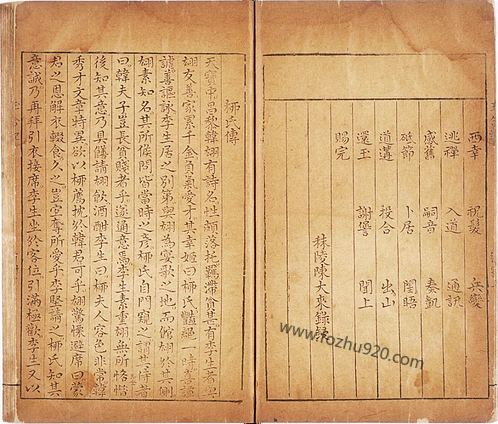 西幸 祝髮 兵變
逃禪 入道 通訊
感舊 嗣音 奏凱
砥節 卜居 閨晤
道遘 投合 出山
還玉 謝讋 聞上
賜完
秣陵陳大來錄
柳氏傳
天寶中昌黎韓翃有詩名性頗落托羈滯貧甚有李生者與
翃友善家累千金負氣愛才其幸姬曰柳氏豔絕一時喜談
謔善謳詠李生居之別第與翃為宴歌之地而館翃於其側
翃素知名其所候問皆當時之彥柳氏自門窺之謂其侍者
曰韓夫子豈長貧賤者乎遂通意焉李生素重翃無所恡惜
後知其意乃具饍請翃飲酒酣李生曰柳夫人容色非常韓
秀才文章特異欲以柳薦枕於韓君可乎翃驚慄避席曰蒙
君之恩解衣輟食久之豈宜奪所愛乎李堅請之柳氏知其
意誠乃再拜引衣接席李坐翃於客位引滿極歡李生又以
www.fozhu920.com